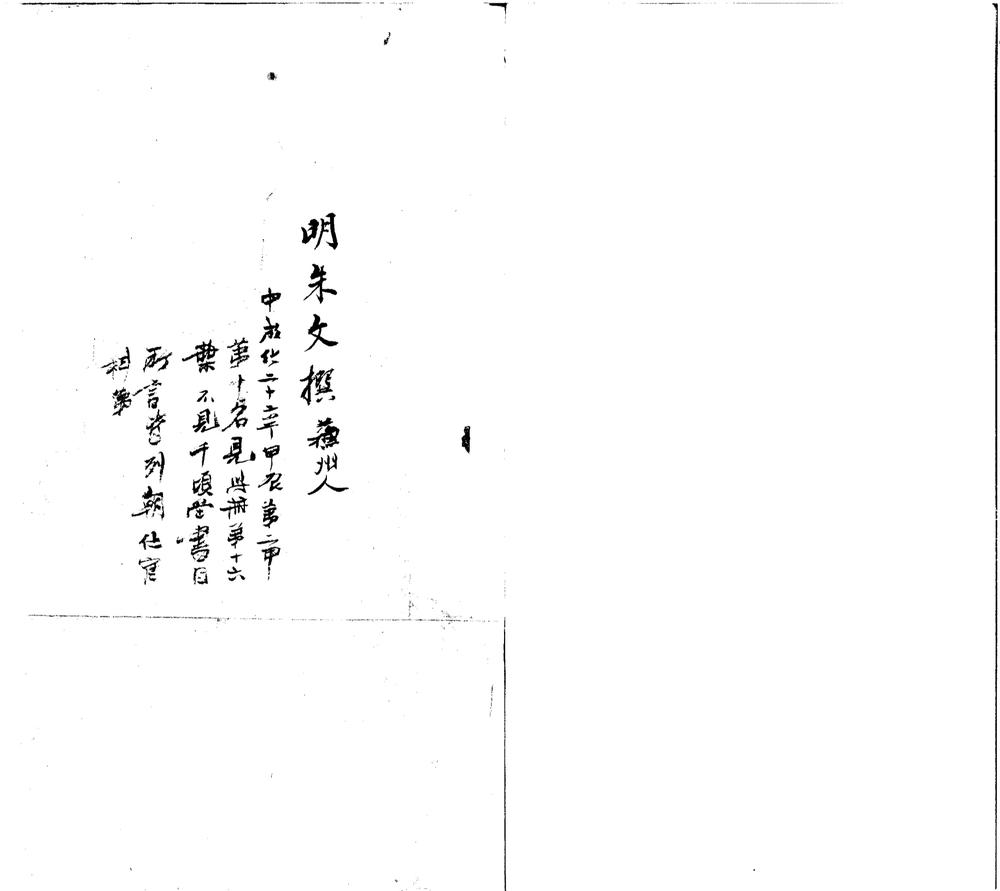 明朱文撰蘇州人
中成化二十年甲辰第二甲
第十名見此冊第十六
葉不見千頃堂書目
所言皆列朝仕宦
科第